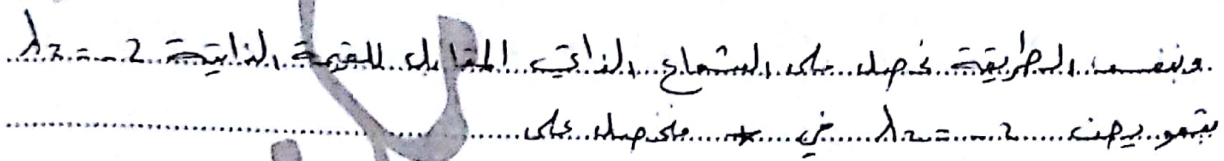 وبنفس الطريقة نحصل على الشعاع الذاتي المقابل للقيمة الذاتية λ₂ = -2
بتعويض λ₂ = -2 في * فنحصل على